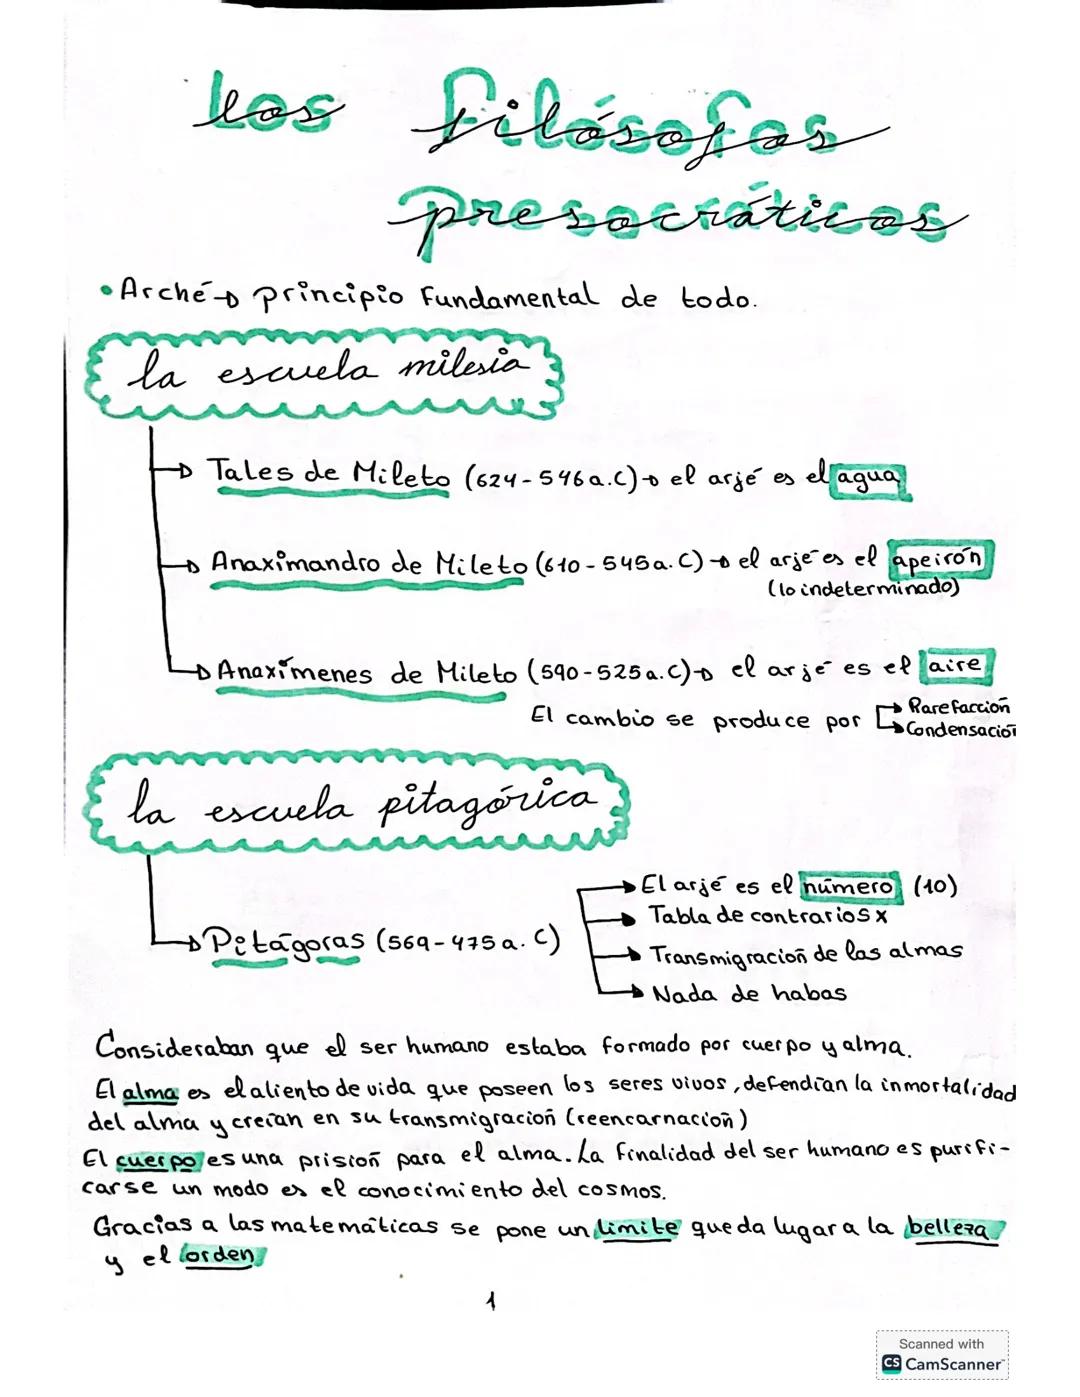 Los filósofos
presocráticos
• Arché → principio fundamental de todo.
la escuela milesia
→ Tales de Mileto (624-546a.C) → el arjé es el agua
→ Anaximandro de Mileto (610-545a.C) → el arjé es el apeirón
(lo indeterminado)
→ Anaxímenes de Mileto (590-525a.C) → el arjé es el aire
El cambio se produce por → Rarefacción
→ Condensación
la escuela pitagórica
→ Pitágoras (569-475a.C)
→ El arjé es el número (10)
→ Tabla de contrarios x
→ Transmigración de las almas
→ Nada de habas
Consideraban que el ser humano estaba formado por cuerpo y alma.
El alma es el aliento de vida que poseen los seres vivos, defendían la inmortalidad
del alma y creían en su transmigración (reencarnación)
El cuerpo es una prisión para el alma. La finalidad del ser humano es purifi-
carse un modo es el conocimiento del cosmos.
Gracias a las matemáticas se pone un límite que da lugar a la belleza
y el orden
1
Scanned with
CS CamScanner